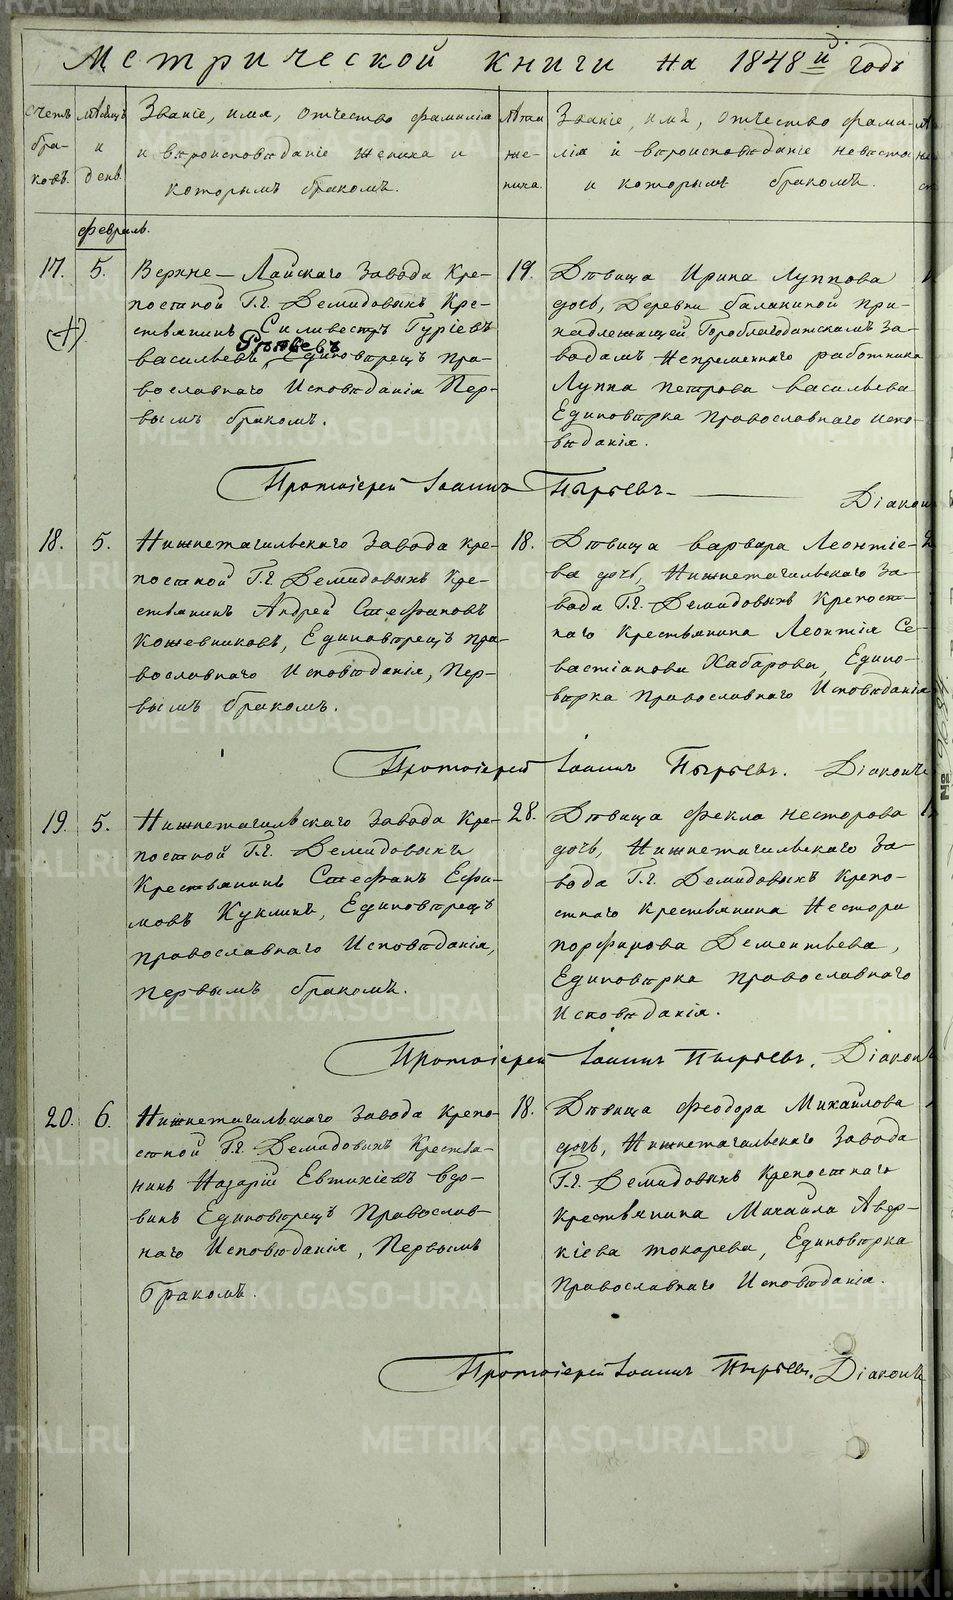 Метрической книги на 1848й годъ
счетъ бра- ковъ.
мѣсяцъ и день
Званіе, имя, отчество фамилія
и вѣроисповѣданіе жениха и
которымъ бракомъ.
Лѣта
же-
ниха.
Званіе, имя, отчество фами-
лія и вѣроисповѣданіе невѣсты
и которымъ бракомъ.
Февраль.
17. 5.
Верхне-Лайскаго Завода Кре-
постной Г.г. Демидовыхъ Кре-
стьянинъ Силивестръ Гуріевъ
Васильевъ, Единовѣрецъ пра-
вославнаго Исповѣданія Пер-
вымъ бракомъ.
19.
Дѣвица Ирина Луппова
дочь, Деревни Балакиной при-
надлежащей Гороблагодатскимъ За-
водамъ Непременнаго работника
Луппа Петрова Васильева
Единовѣрка Православнаго испо-
вѣданія.
Протоіерей Іоаннъ Пырьевъ Діакон
18. 5.
Нижнетагильскаго Завода кре-
постной Г.г. Демидовыхъ Кре-
стьянинъ Андрей Стефановъ
Кожевниковъ, Единовѣрецъ пра-
вославнаго Исповѣданія, Пер-
вымъ бракомъ.
18.
Дѣвица Варвара Леонтіе-
ва дочь, Нижнетагильскаго За-
вода Г.г. Демидовыхъ Крепост-
наго Крестьянина Леонтія Се-
вастіанова Хабарова, Едино-
вѣрка Православнаго Исповѣданія
Протоіерей Іоаннъ Пырьевъ. Діаконъ
19. 5.
Нижнетагильскаго Завода Кре-
постной Г.г. Демидовыхъ
Крестьянинъ Стефанъ Ефи-
мовъ Куклинъ, Единовѣрецъ
православнаго Исповѣданія,
Первымъ бракомъ.
28.
Дѣвица Фекла Несторова
дочь, Нижнетагильскаго За-
вода Г.г. Демидовыхъ Крепо-
стнаго Крестьянина Нестора
Порфирова Дементьева,
Единовѣрка православнаго
Исповѣданія.
Протоіерей Іоаннъ Пырьевъ. Діаконъ
20. 6.
Нижнетагильскаго Завода Крепо-
стной Г.г. Демидовыхъ Крестья-
нинъ Назарій Евтихіевъ Вдо-
винъ Единовѣрецъ Православ-
наго Исповѣданія, Первымъ
бракомъ.
18.
Дѣвица Феодора Михайлова
дочь, Нижнетагильскаго Завода
Г.г. Демидовыхъ Крепостнаго
Крестьянина Михаила Авер-
кіева Токарева, Единовѣрка
Православнаго Исповѣданія.
Протоіерей Іоаннъ Пырьевъ. Діаконъ
METRIKI.GASO-URAL.RU